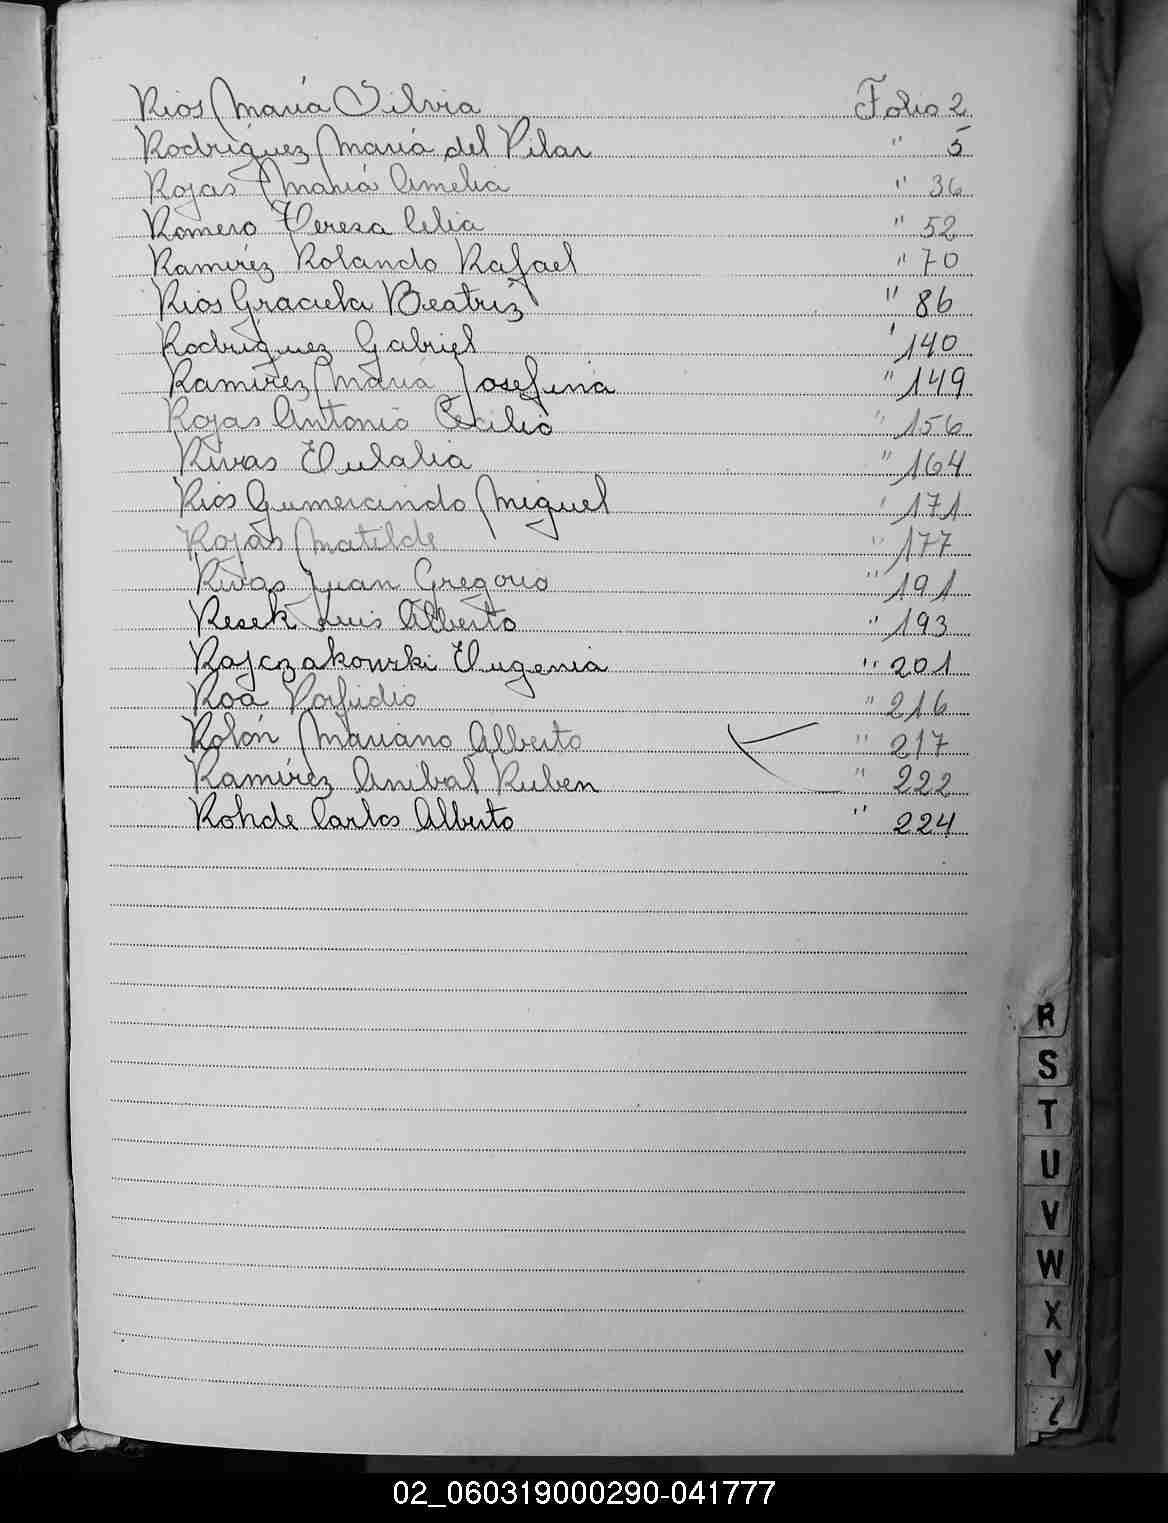 Rios María Silvia Folio 2
Rodriguez María del Pilar " 5
Rojas María Amelia " 36
Romero Teresa Celia " 52
Ramiréz Rolando Rafael " 70
Rios Graciela Beatriz " 86
Rodriguez Gabriel ' 140
Ramirez María Josefina " 149
Rojas Antonio Cecilio " 156
Rivas Eulalia " 164
Rios Gumercindo Miguel ' 171
Rojas Matilde " 177
Rivas Juan Gregorio " 191
Resek Luis Alberto " 193
Rajczakowski Eugenia " 201
Roa Porfidio " 216
Rolón Mariano Alberto " 217
Ramírez Anibal Ruben " 222
Rohde Carlos Alberto " 224
R
S
T
U
V
W
X
Y
Z
02_060319000290-041777